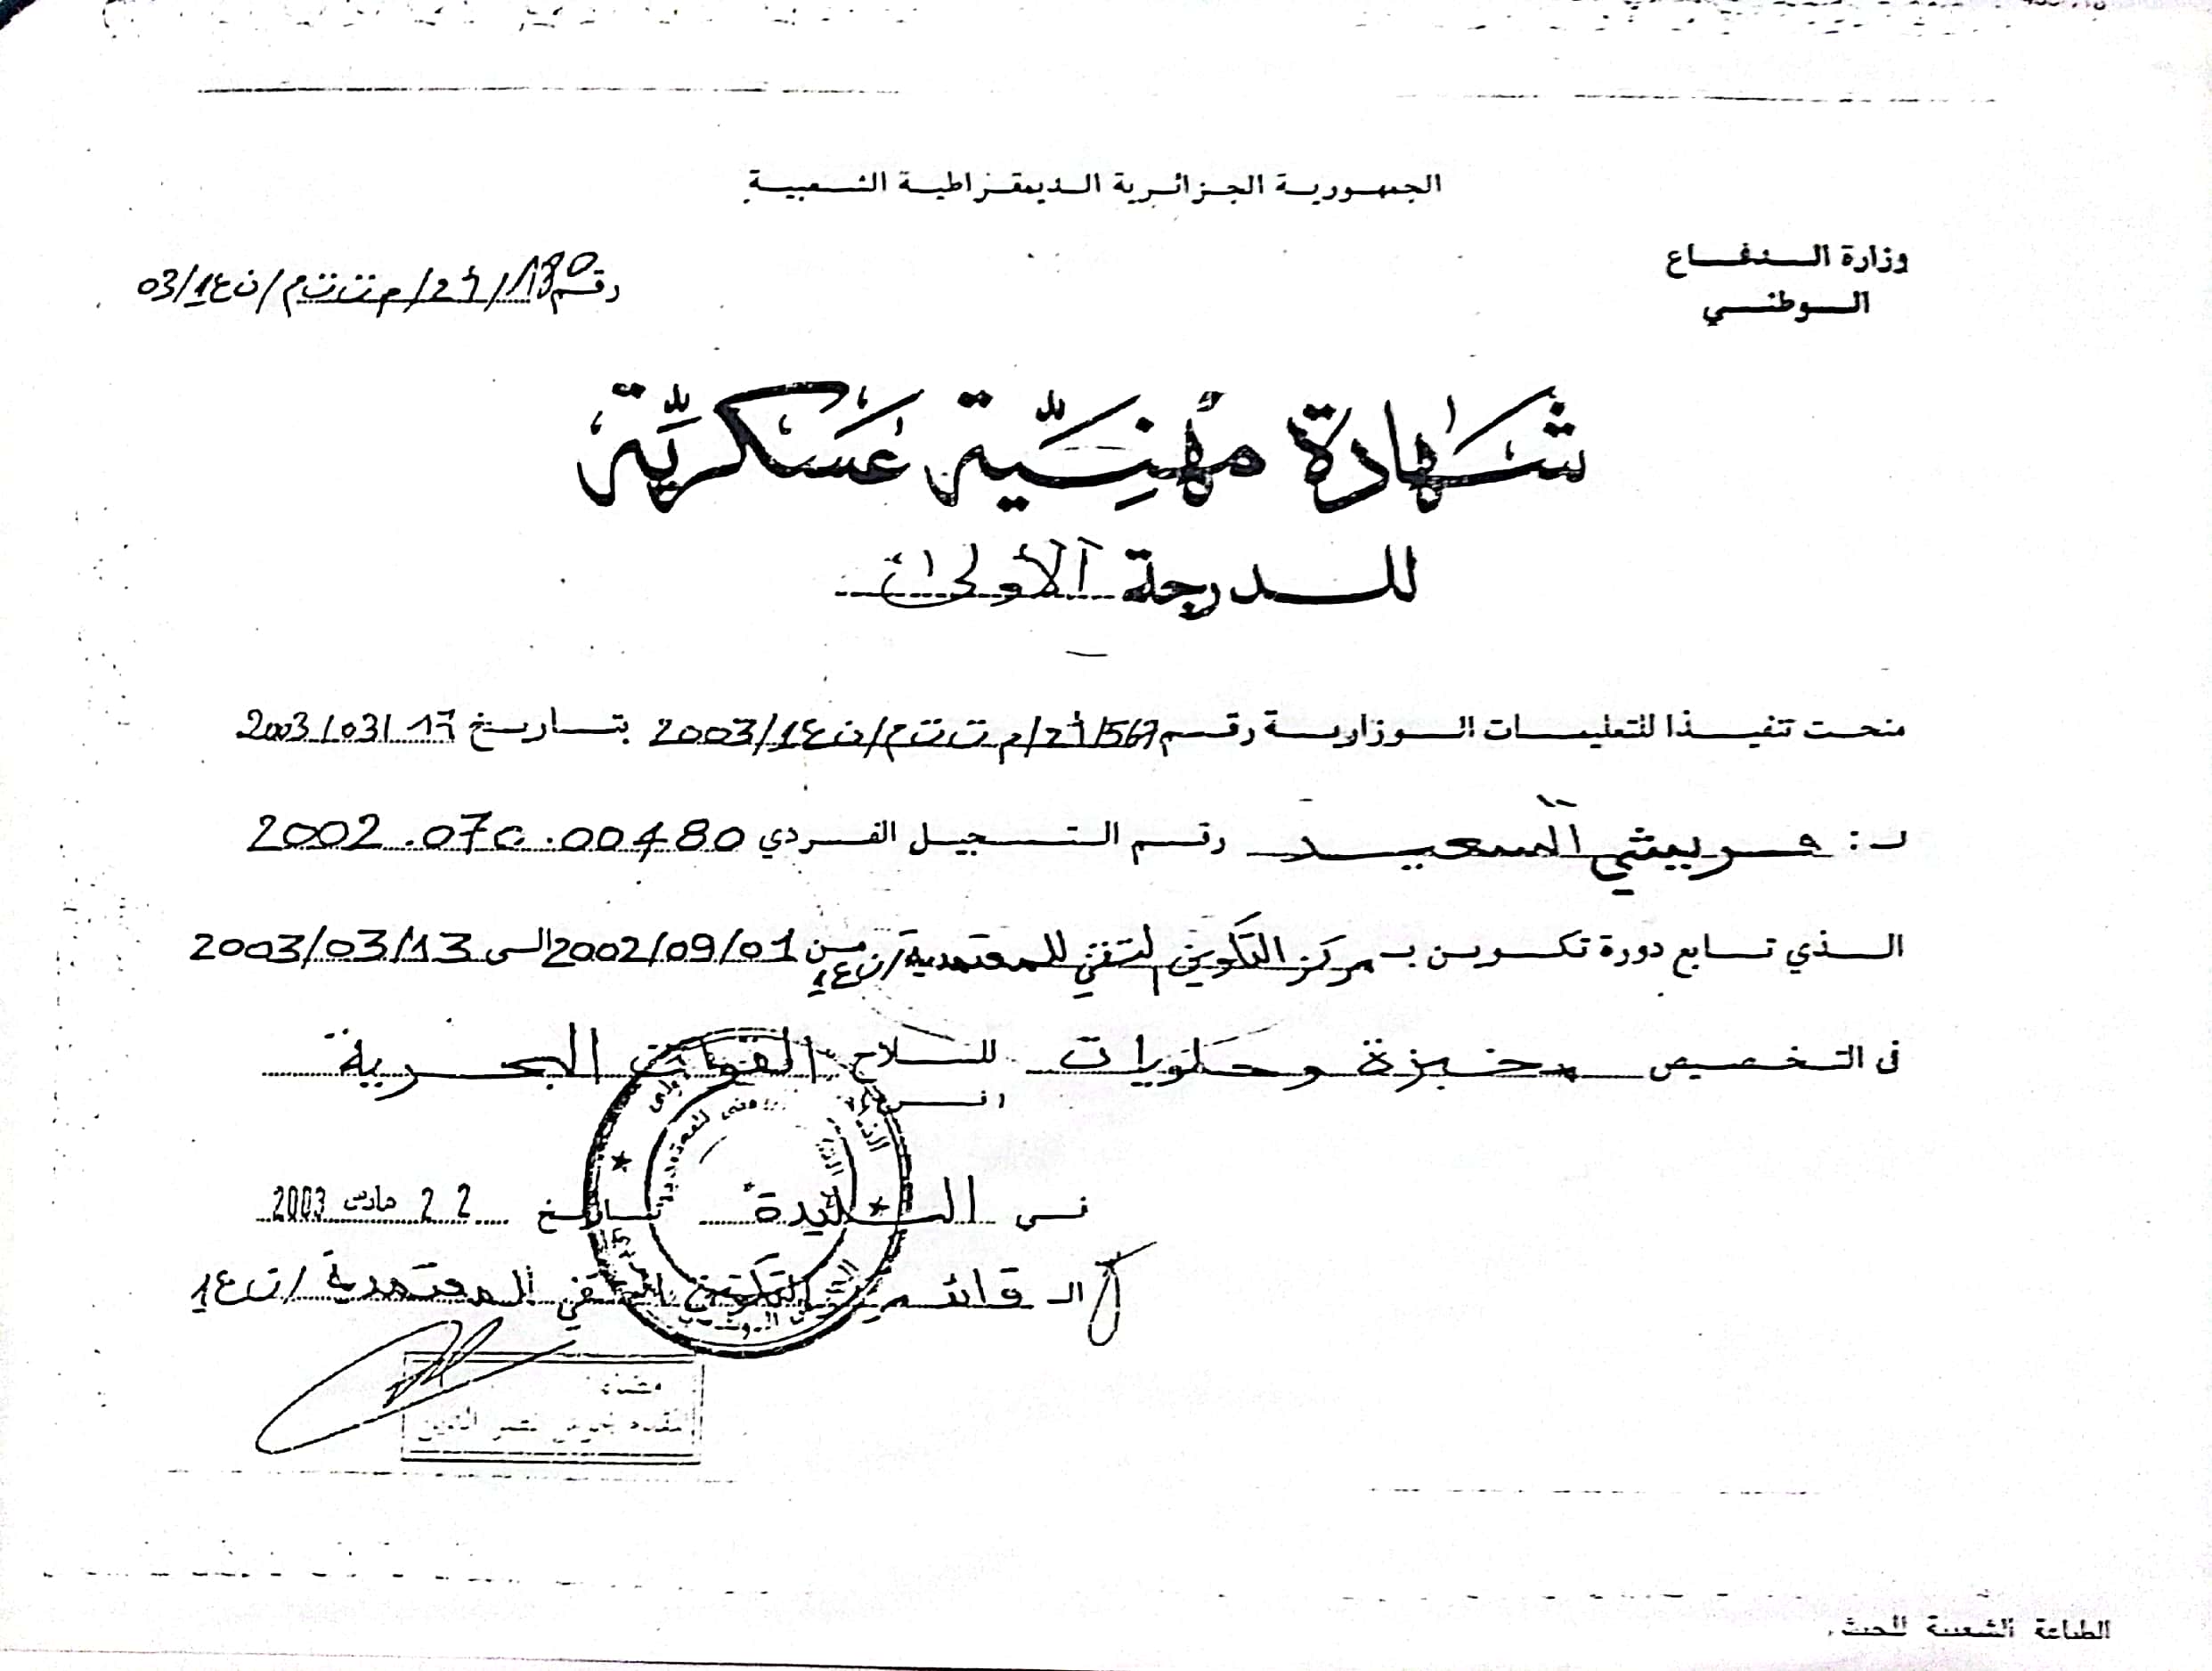 الجمهورية الجزائرية الديمقراطية الشعبية
وزارة الدفاع
الوطني
رقم 130/أد/م ت ت م/ن ع 1/03
شهادة مهنية عسكرية
للدرجة الأولى
منحت تنفيذا للتعليمات الوزارية رقم 567/أد/م ت ت م/ن ع 1/2003 بتاريخ 17/03/2003
لـ: السعيد رقم التسجيل الفردي 2002.07c.00480
الذي تابع دورة تكوين بـ مركز التكوين التقني للمعتمدية/ن ع 1 من 2002/09/01 الى 2003/03/13
في التخصيص مخبزة وحلويات للسلاح القوات البحرية
في البليدة بتاريخ 22 مارس 2003
الـ قائد مركز التكوين التقني المعتمدية/ن ع 1
الطباعة الشعبية للجيش.